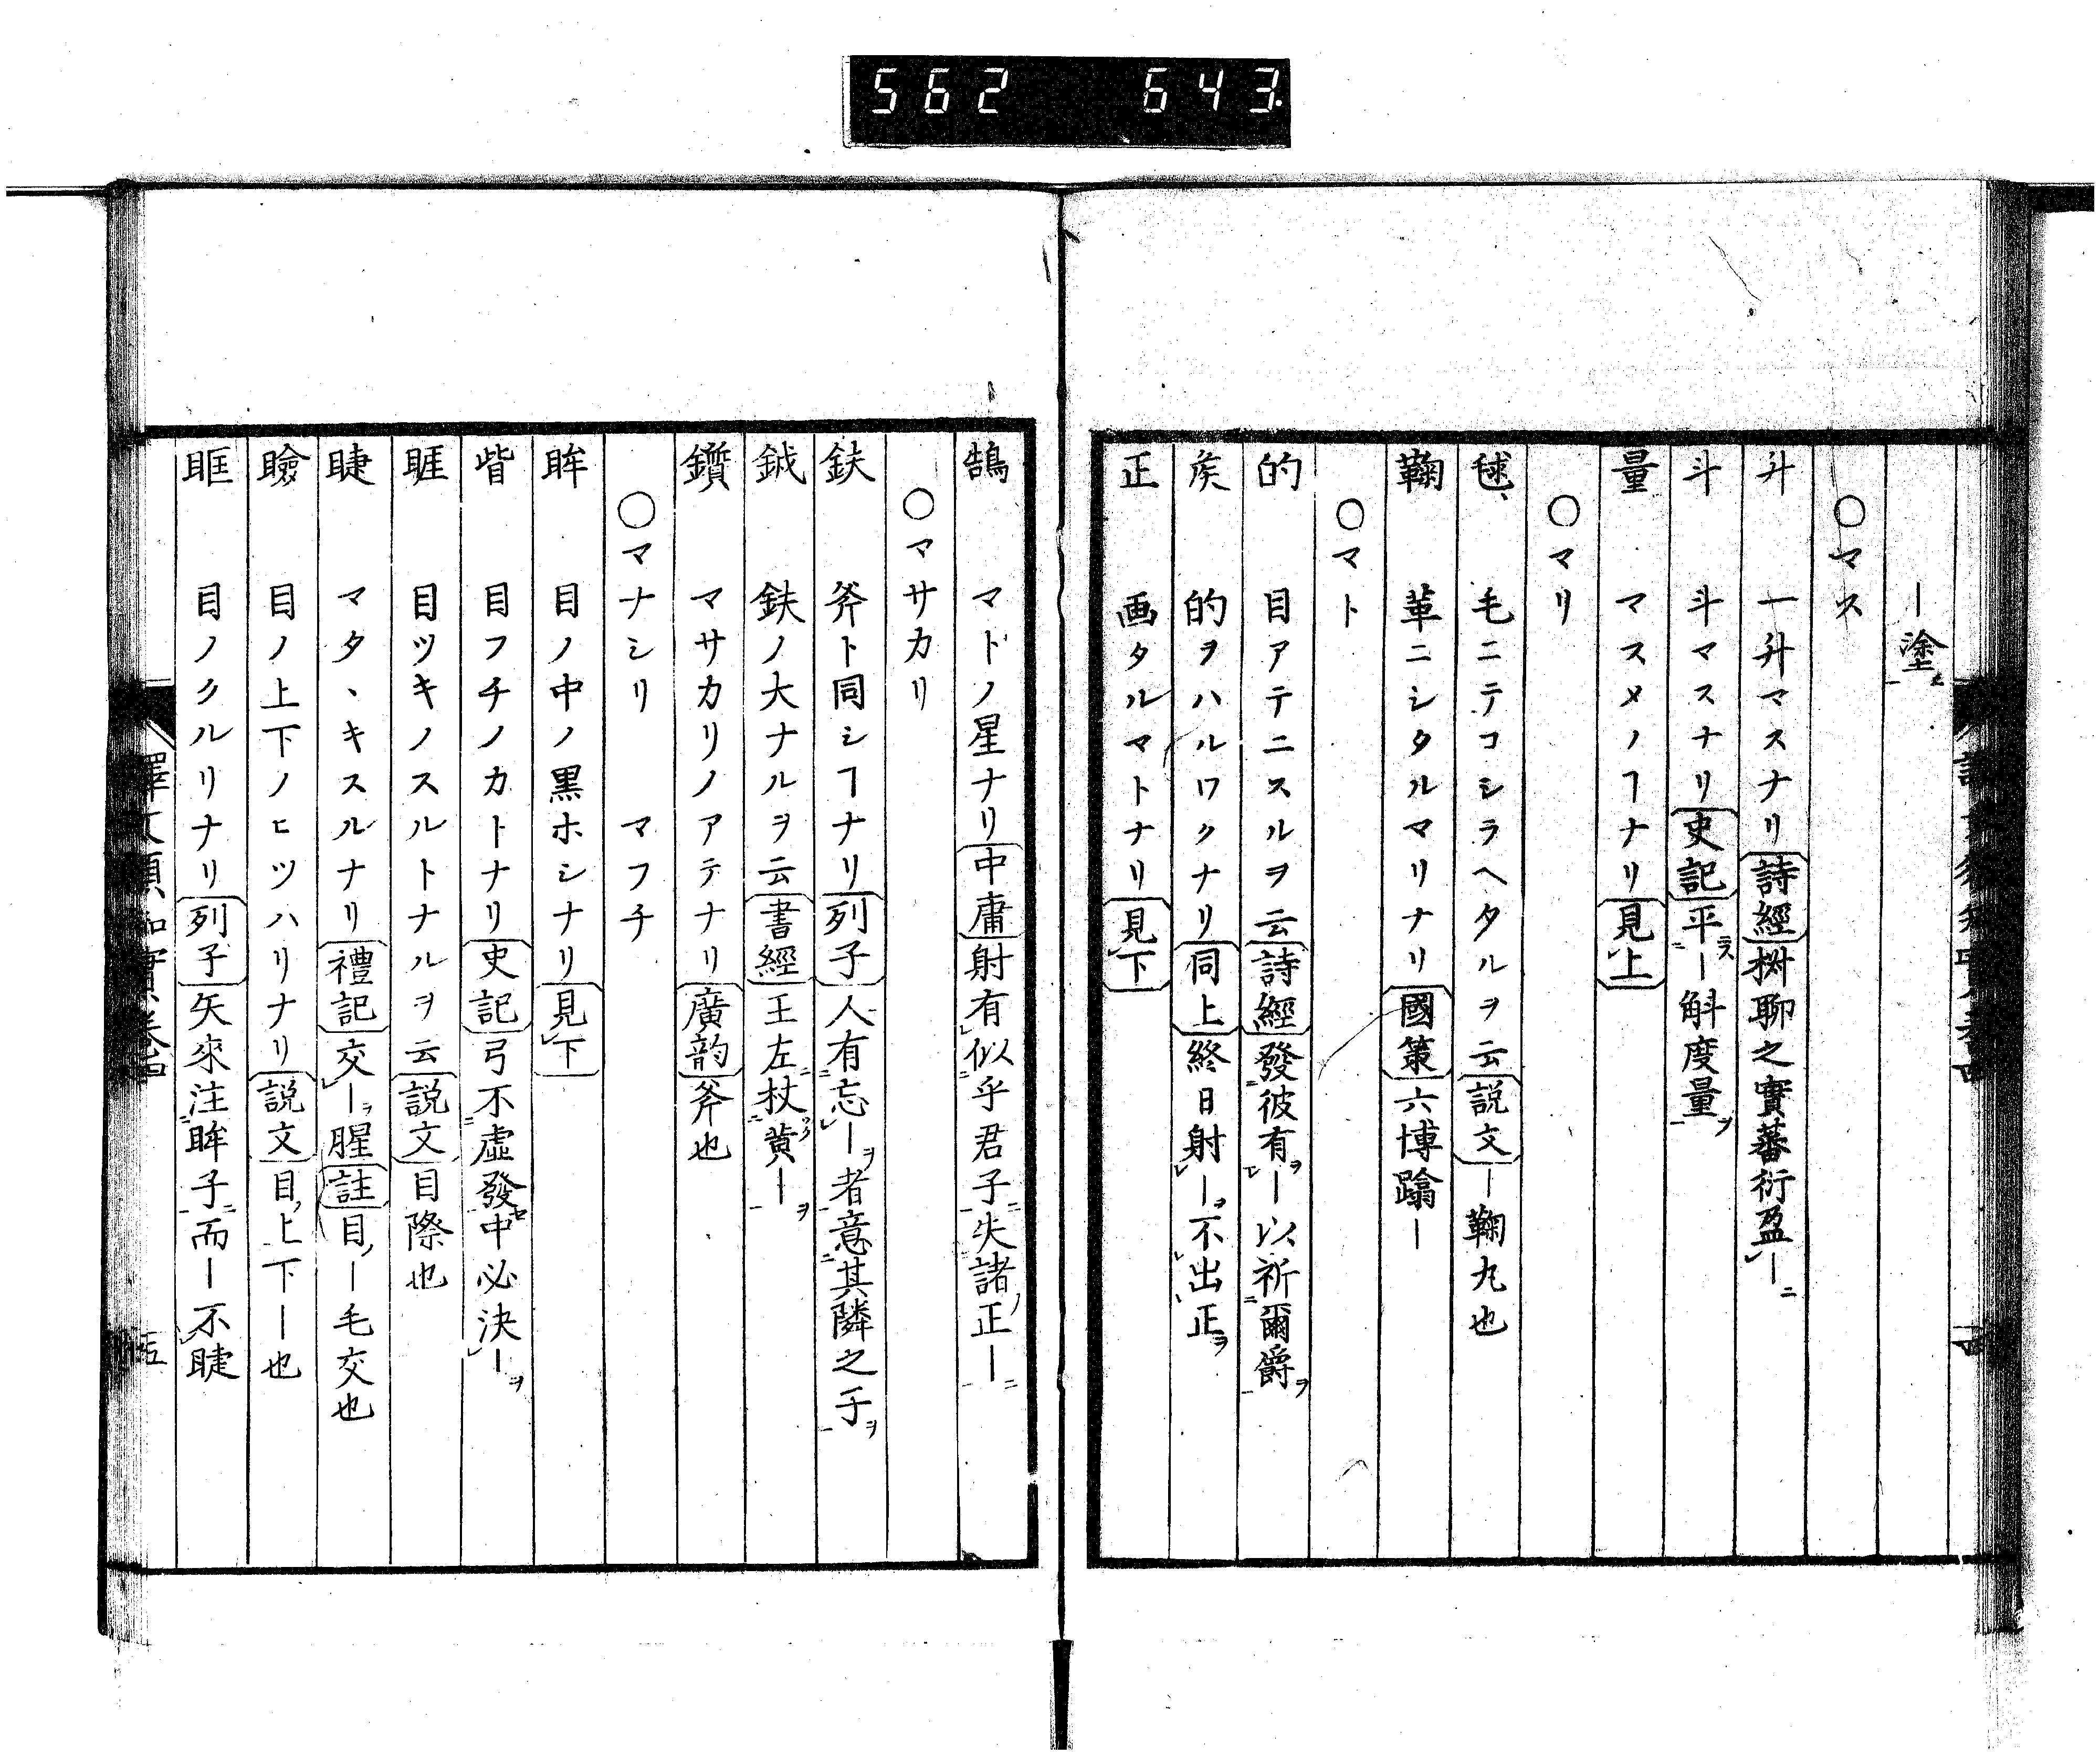 562 643.
―塗
○マス
升 一升マスナリ詩經椒聊之實蕃衍盈―
斗 斗マスナリ史記平―斛度量
量 マスメノヿナリ見上
○マリ
毬 毛ニテコシラヘタルヲ云説文―鞠丸也
鞠 革ニシタルマリナリ國策六博蹹―
○マト
的 目アテニスルヲ云詩經發彼有―以祈爾爵
矦 的ヲハルワクナリ同上終日射―不出正
正 画タルマトナリ見下
鵠 マトノ星ナリ中庸射有似乎君子失諸正―
○マサカリ
鈇 斧ト同シヿナリ列子人有忘―者意其隣之子
鉞 鈇ノ大ナルヲ云書經王左杖黄―
鑕 マサカリノアテナリ廣韵斧也
○マナシリ マフチ
眸 目ノ中ノ黒ホシナリ見下
眥 目フチノカトナリ史記弓不虚發中必決―
睚 目ツキノスルトナルヲ云説文目際也
睫 マタヽキスルナリ禮記交―腥註目―毛交也
瞼 目ノ上下ノヒツハリナリ説文目上下―也
眶 目ノクルリナリ列子矢來注眸子而―不睫